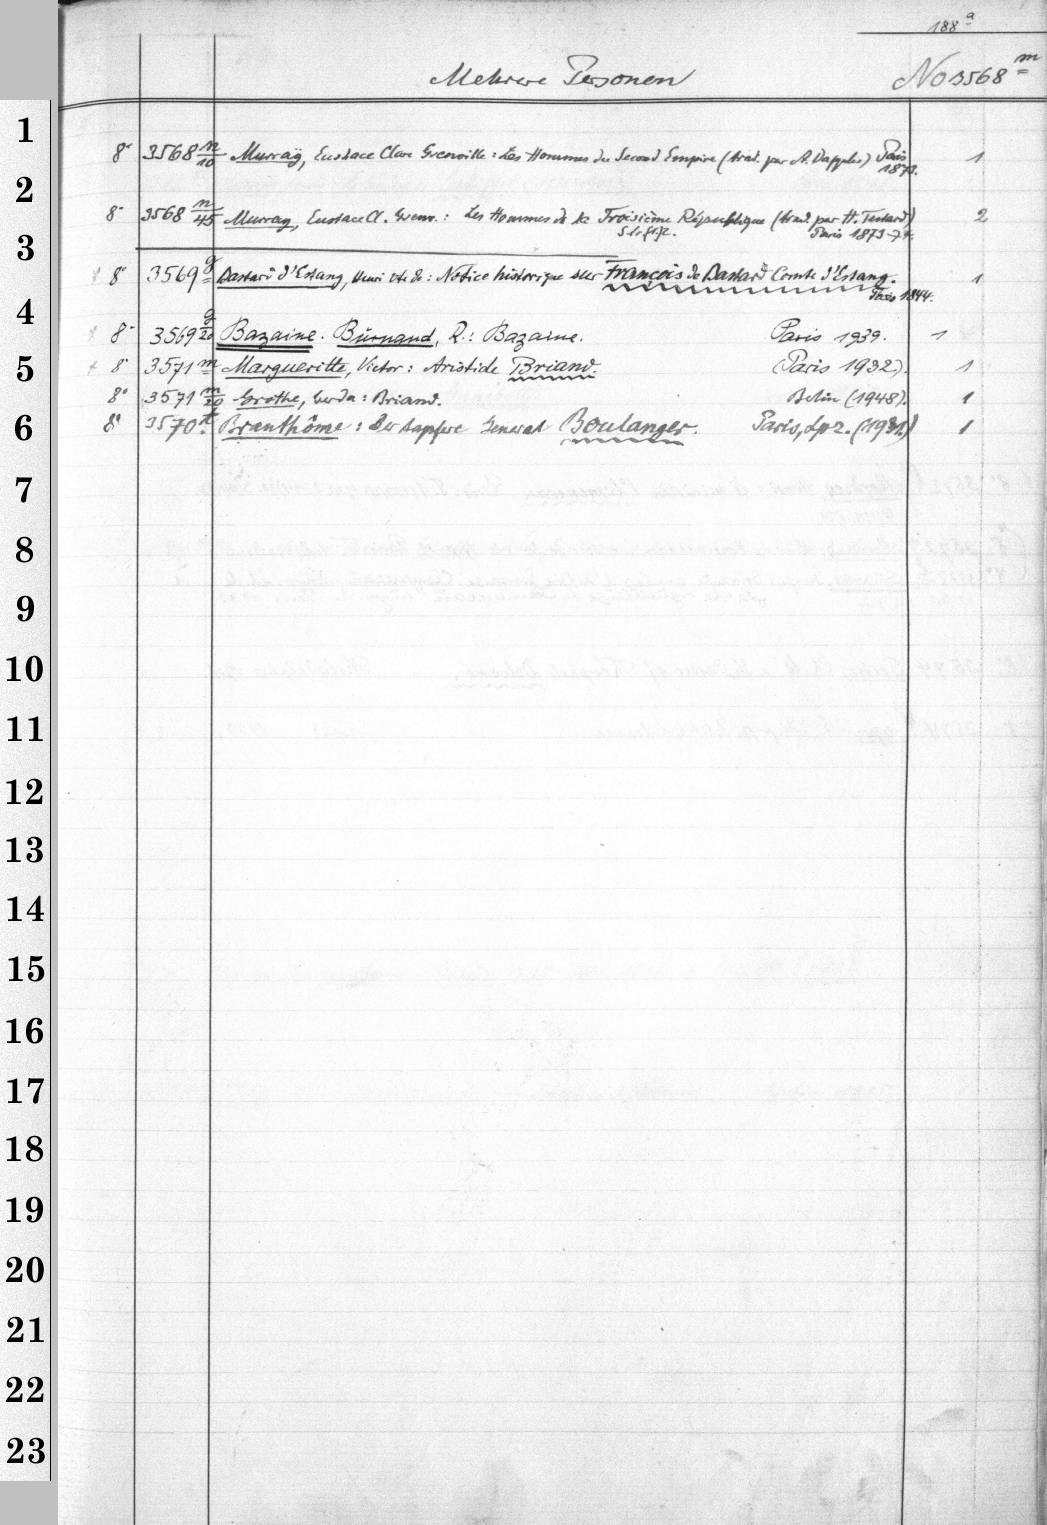 188a
Mehrere Personen No 3568 m
1
8° 3568 n/10 Murray, Eustace Clare Grenville: Les Hommes du Second Empire (trad. par A. Dapples) Paris 1873. 1
2
8° 3568 n/45 Murray, Eustace Cl. Grenv.: Les Hommes de la Troisième République (trad. par H. Testard) 2
Paris 1873-74.
3
8° 3569 g Bastard d'Estang, Henri Vte de: Notice historique sur François de Bastard Comte d'Estang. 1
Paris 1844.
4
8° 3569 g/20 Bazaine. Burnand, R.: Bazaine. Paris 1939. 1
5
8° 3571 m Margueritte, Victor: Aristide Briand. (Paris 1932). 1
8° 3571 m/20 Grothe, Gerda: Briand. Berlin (1948). 1
6
8° 3570 t Branthôme: Der tapfere General Boulanger. Paris, Lpz. (1931.) 1
7
8
9
10
11
12
13
14
15
16
17
18
19
20
21
22
23